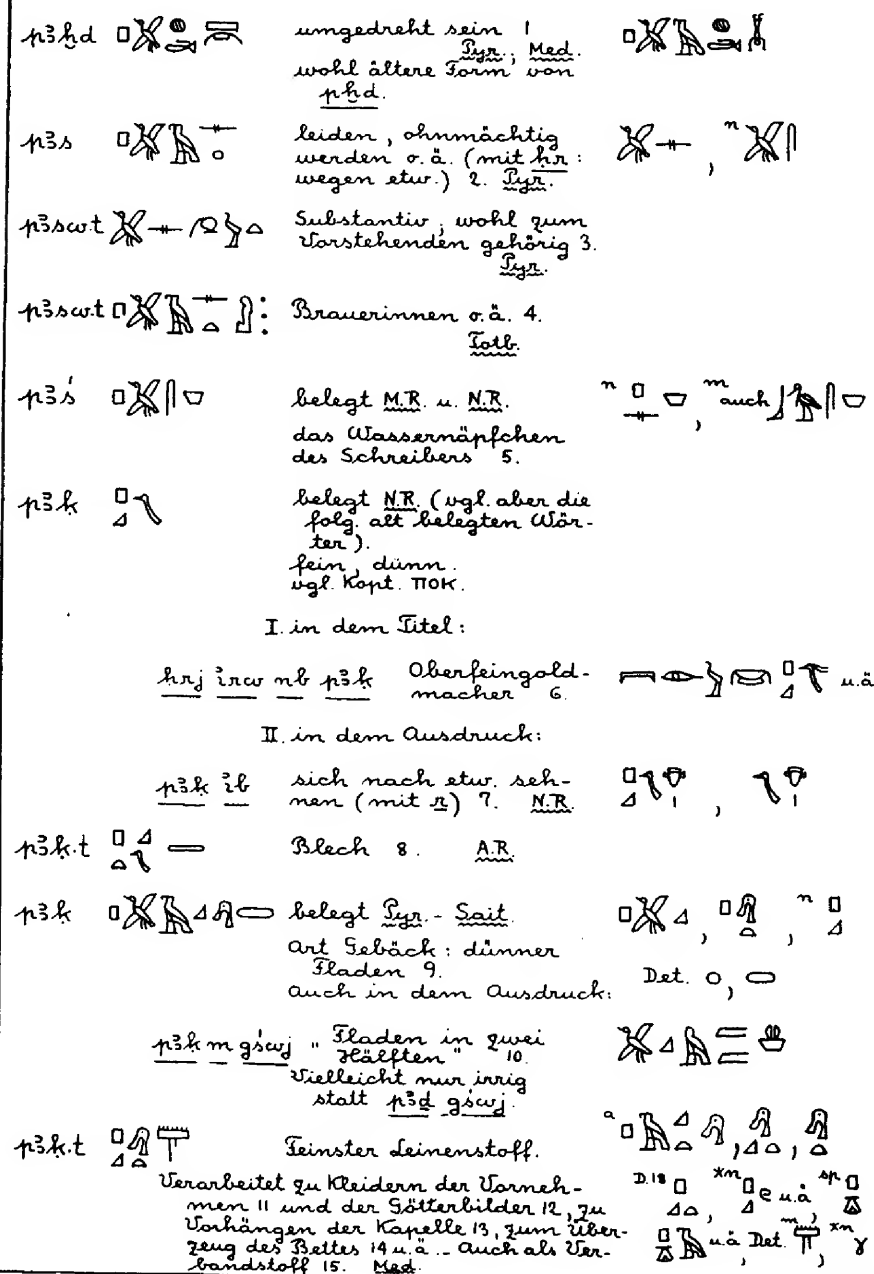 pꜣḫd umgedreht sein 1
Pyr., Med.
wohl ältere Form von
pḫd.
pꜣs leiden, ohnmächtig
werden o. ä. (mit ḥr :
wegen etw.) 2. Pyr. , n
pꜣswt Substantiv, wohl zum
Vorstehenden gehörig 3.
Pyr.
pꜣsw.t Brauerinnen o. ä. 4.
Totb.
pꜣś belegt M.R. u. N.R. n , m auch
das Wassernäpfchen
des Schreibers 5.
pꜣḳ belegt N.R. (vgl. aber die
folg. alt belegten Wör-
ter).
fein, dünn.
vgl. Kopt. ⲡⲟⲕ.
I. in dem Titel:
ḥrj irw nb pꜣḳ Oberfeingold-
macher 6. u. ä
II. in dem Ausdruck:
pꜣḳ ib sich nach etw. seh-
nen (mit r) 7. N.R. ,
pꜣḳ.t Blech 8. A.R.
pꜣḳ belegt Pyr. - Sait. , , n
Art Gebäck: dünner
Fladen 9. Det. ,
auch in dem Ausdruck:
pꜣḳ m gśwj „Fladen in zwei
Hälften" 10.
Vielleicht nur irrig
statt pꜣḏ gśwj.
pꜣḳ.t Feinster Leinenstoff. a , ,
Verarbeitet zu Kleidern der Vorneh- D.18 , *n u. ä , sp
men 11 und der Götterbilder 12, zu
Vorhängen der Kapelle 13, zum Über- u. ä Det. m , *n
zeug des Bettes 14 u. ä. – Auch als Ver-
bandstoff 15. Med.